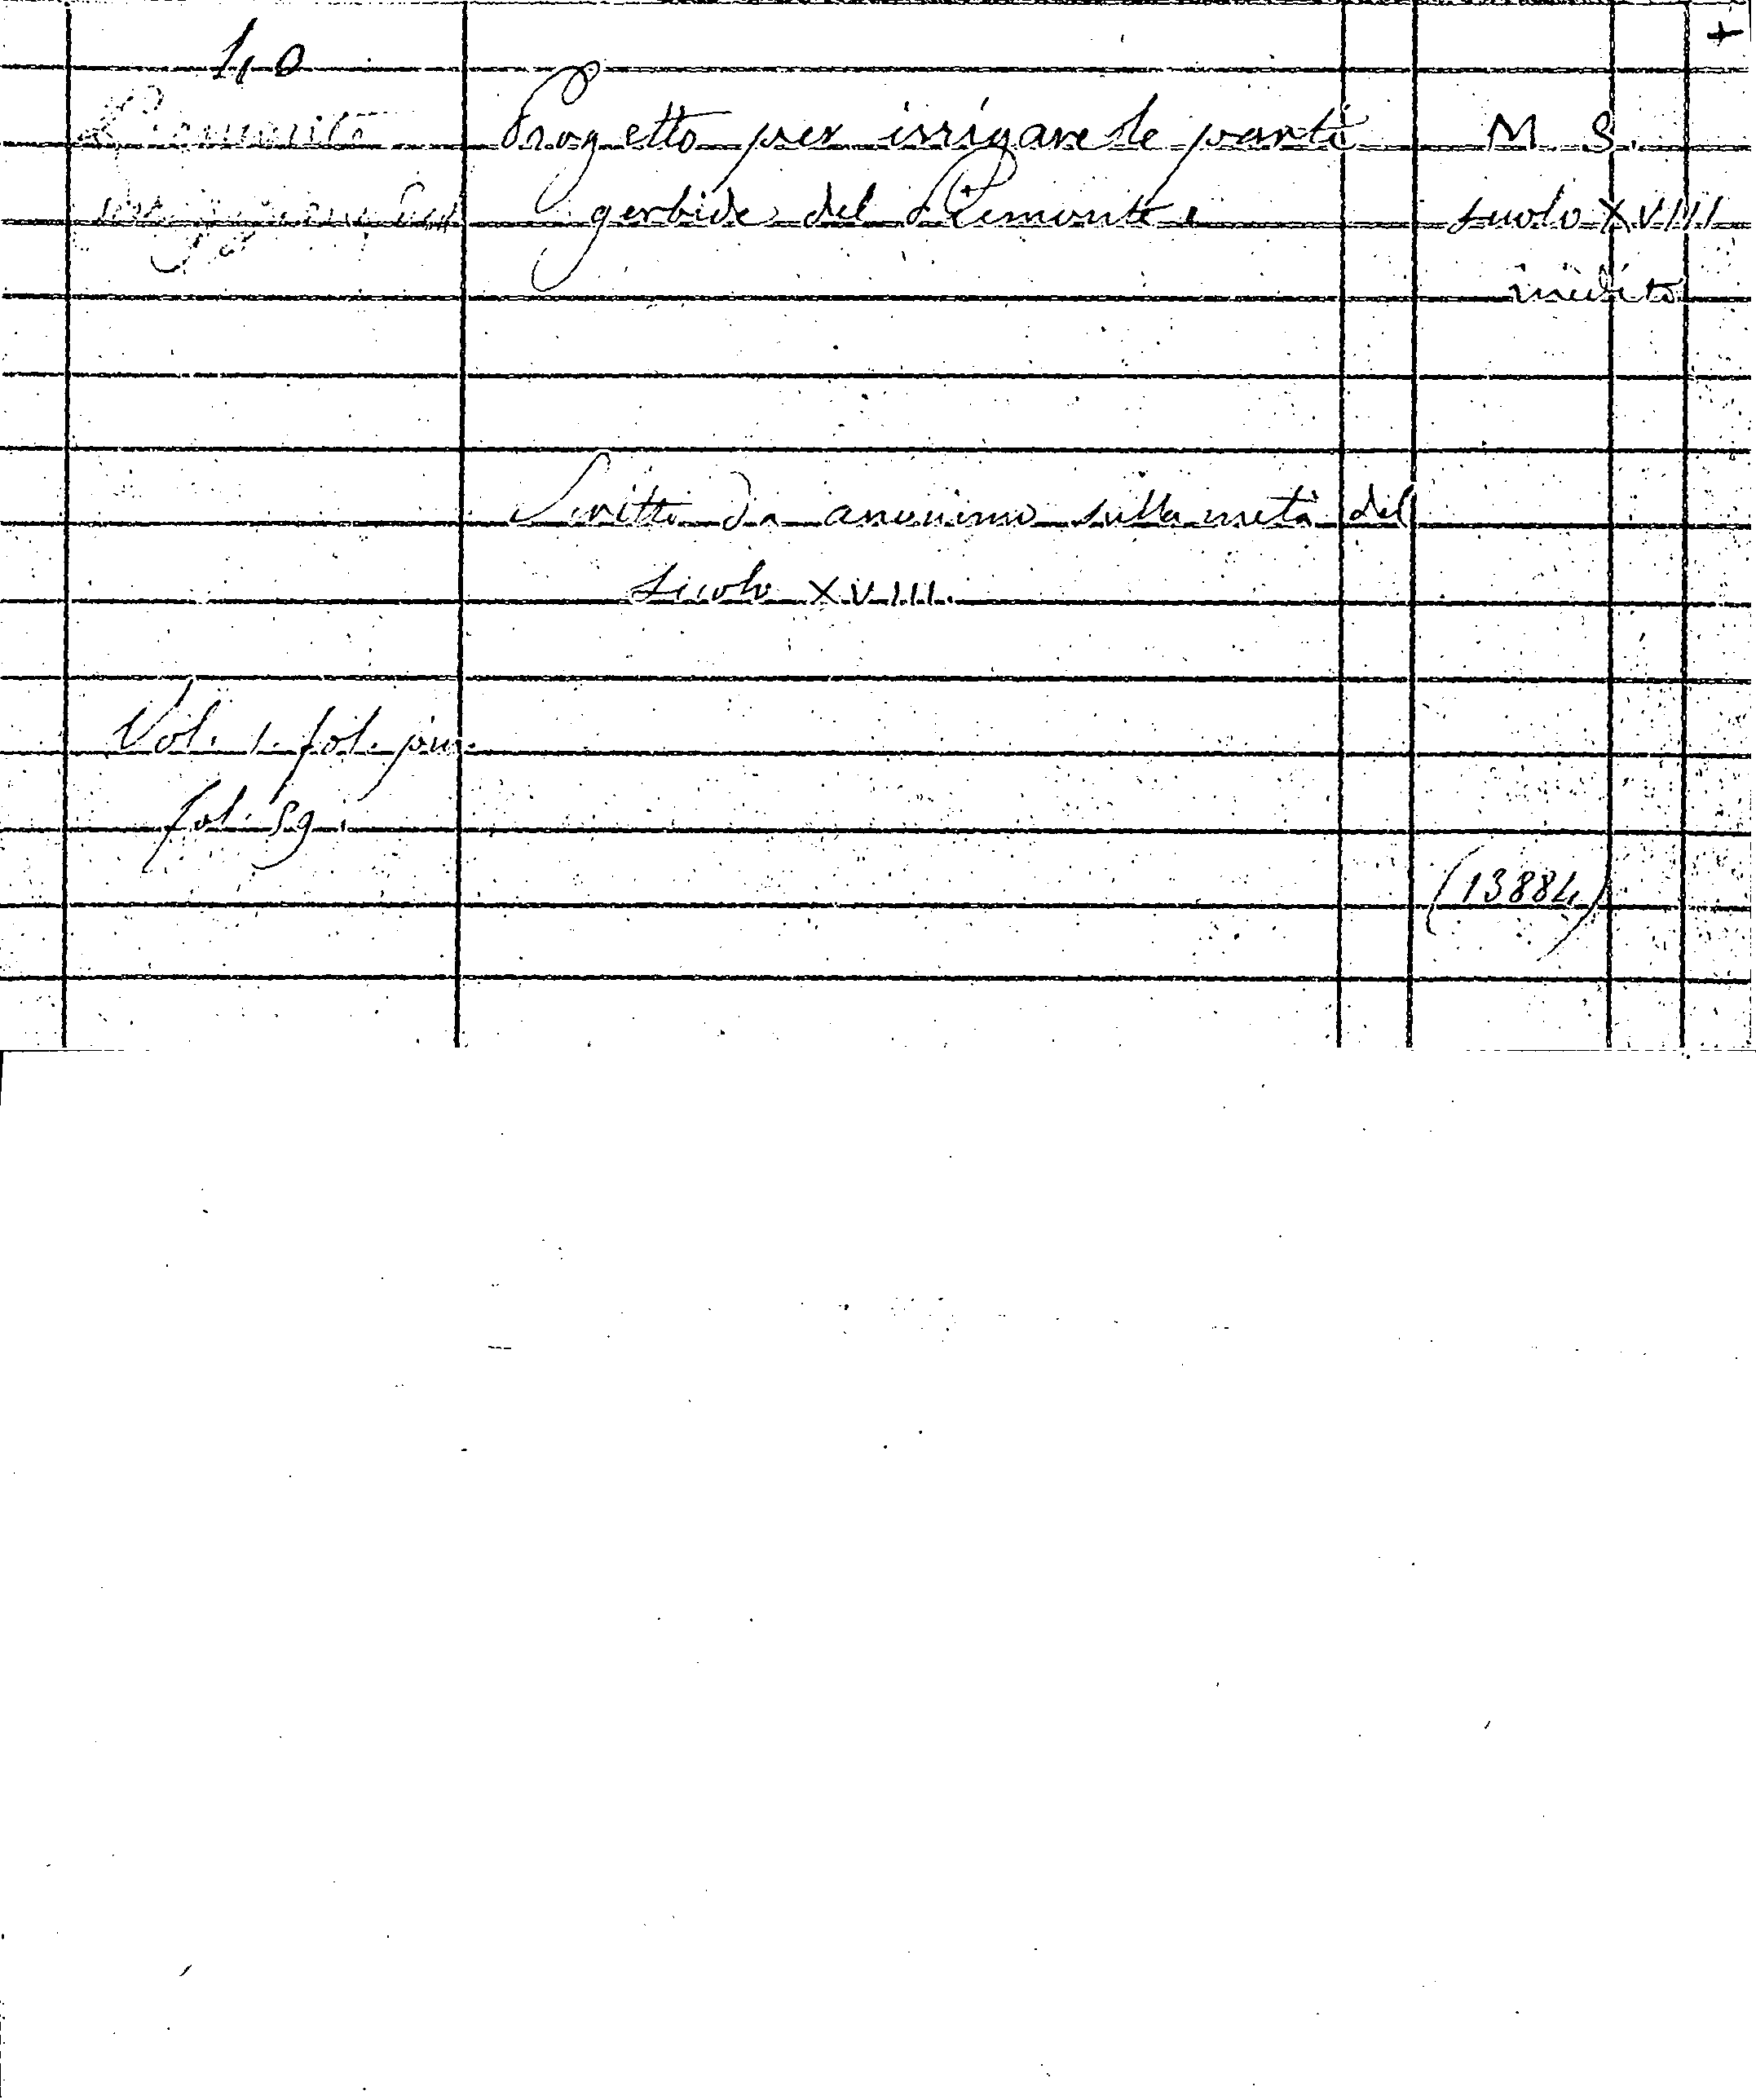 40
Piemonte
Progetto per irrigare le parti
M. S.
gerbide del Piemonte
secolo XVIII
inedito
Scritto da anonimo sulla metà del
secolo XVIII.
Vol. 1. fol. più.
fol. 59.
(13884)